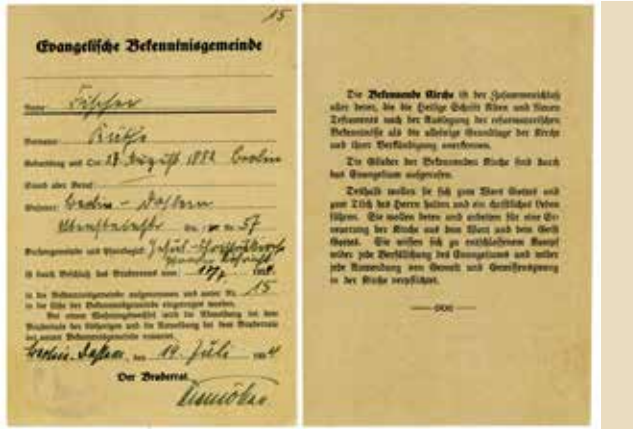 15
Evangelische Bekenntnisgemeinde
Name: Fischer
Vorname:
Geburtstag und Ort: 23. August 1882 Berlin
Stand oder Beruf:
Wohnort: Berlin - Dahlem
Nr. 57
Kirchengemeinde und Pfarrbezirk:
ist durch Beschluß des Bruderrats vom:
in die Bekenntnisgemeinde aufgenommen und unter Nr. 15
in die Liste der Bekenntnisgemeinde eingetragen worden.
Bei einem Wohnungswechsel wird die Abmeldung bei dem
Bruderrat der bisherigen und die Anmeldung bei dem Bruderrat
der neuen Bekenntnisgemeinde erwartet.
Berlin-Dahlem, den 19. Juli
Der Bruderrat.
Niemöller
Die Bekennende Kirche ist der Zusammenschluß
aller derer, die die Heilige Schrift Alten und Neuen
Testaments nach der Auslegung der reformatorischen
Bekenntnisse als die alleinige Grundlage der Kirche
und ihrer Verkündigung anerkennen.
Die Glieder der Bekennenden Kirche sind durch
das Evangelium aufgerufen.
Deshalb wollen sie sich zum Wort Gottes und
zum Tisch des Herrn halten und ein christliches Leben
führen. Sie wollen beten und arbeiten für eine Er-
neuerung der Kirche aus dem Wort und dem Geist
Gottes. Sie wissen sich zu entschlossenem Kampf
wider jede Verfälschung des Evangeliums und wider
jede Anwendung von Gewalt und Gewissenszwang
in der Kirche verpflichtet.